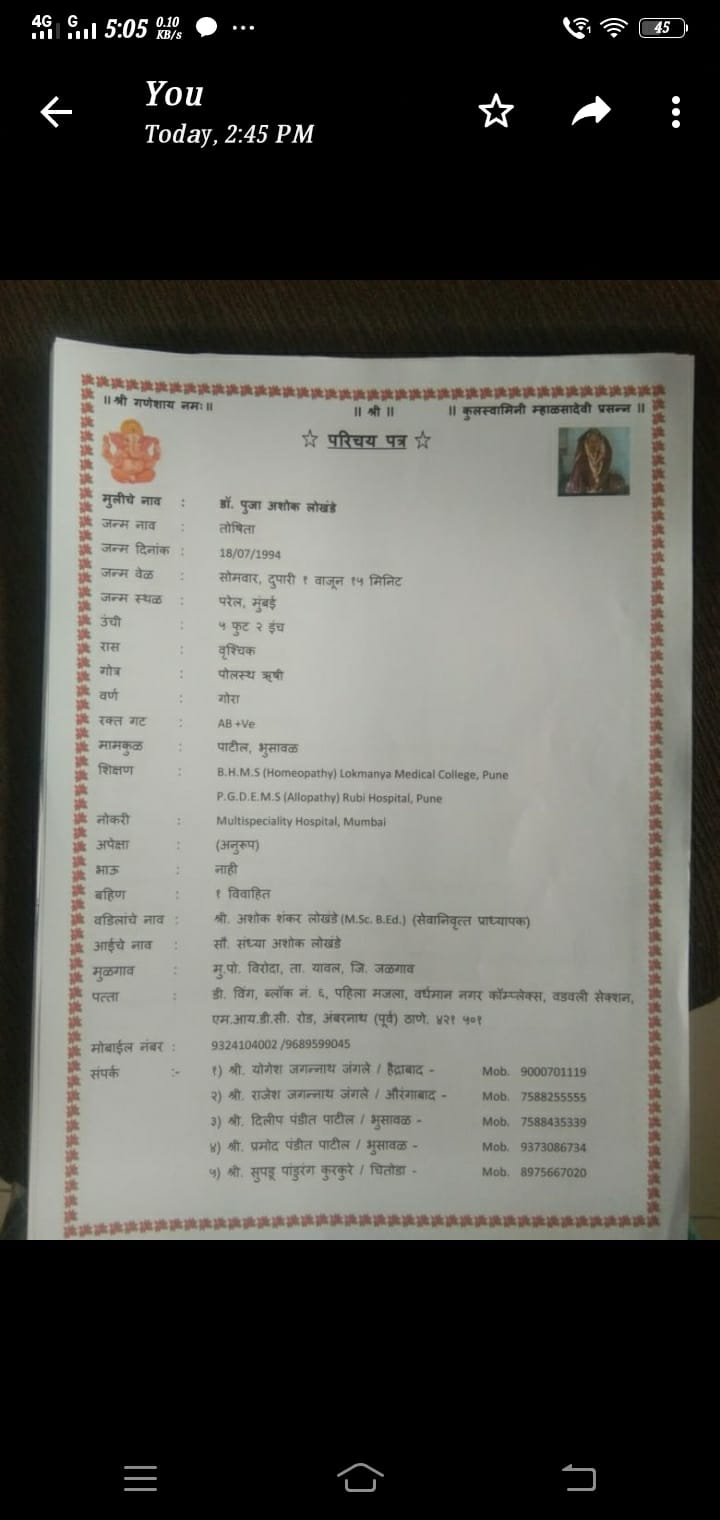 4G G 5:05 0.10 KB/s 1 45
You
Today, 2:45 PM
॥ श्री गणेशाय नमः॥ ॥ श्री ॥ ॥ कुलस्वामिनी म्हाळसादेवी प्रसन्न ॥
☆ परिचय पत्र ☆
मुलीचे नाव : डॉ. पुजा अशोक लोखंडे
जन्म नाव : तोषिता
जन्म दिनांक : 18/07/1994
जन्म वेळ : सोमवार, दुपारी १ वाजून १५ मिनिट
जन्म स्थळ : परेल, मुंबई
उंची : ५ फुट २ इंच
रास : वृश्चिक
गोत्र : पोलस्थ ऋषी
वर्ण : गोरा
रक्त गट : AB +Ve
मामकुळ : पाटील, भुसावळ
शिक्षण : B.H.M.S (Homeopathy) Lokmanya Medical College, Pune
P.G.D.E.M.S (Allopathy) Rubi Hospital, Pune
नोकरी : Multispeciality Hospital, Mumbai
अपेक्षा : (अनुरूप)
भाऊ : नाही
बहिण : १ विवाहित
वडिलांचे नाव : श्री. अशोक शंकर लोखंडे (M.Sc. B.Ed.) (सेवानिवृत्त प्राध्यापक)
आईचे नाव : सौ. संध्या अशोक लोखंडे
मुळगाव : मु.पो. विरोदा, ता. यावल, जि. जळगाव
पत्ता : डी. विंग, ब्लॉक नं. ६, पहिला मजला, वर्धमान नगर कॉम्प्लेक्स, वडवली सेक्शन,
एम.आय.डी.सी. रोड, अंबरनाथ (पूर्व) ठाणे. ४२१ ५०१
मोबाईल नंबर : 9324104002 /9689599045
संपर्क :- १) श्री. योगेश जगन्नाथ जंगले / हैद्राबाद - Mob. 9000701119
२) श्री. राजेश जगन्नाथ जंगले / औरंगाबाद - Mob. 7588255555
३) श्री. दिलीप पंडीत पाटील / भुसावळ - Mob. 7588435339
४) श्री. प्रमोद पंडीत पाटील / भुसावळ - Mob. 9373086734
५) श्री. सुपडू पांडुरंग कुरकुरे / चितोडा - Mob. 8975667020